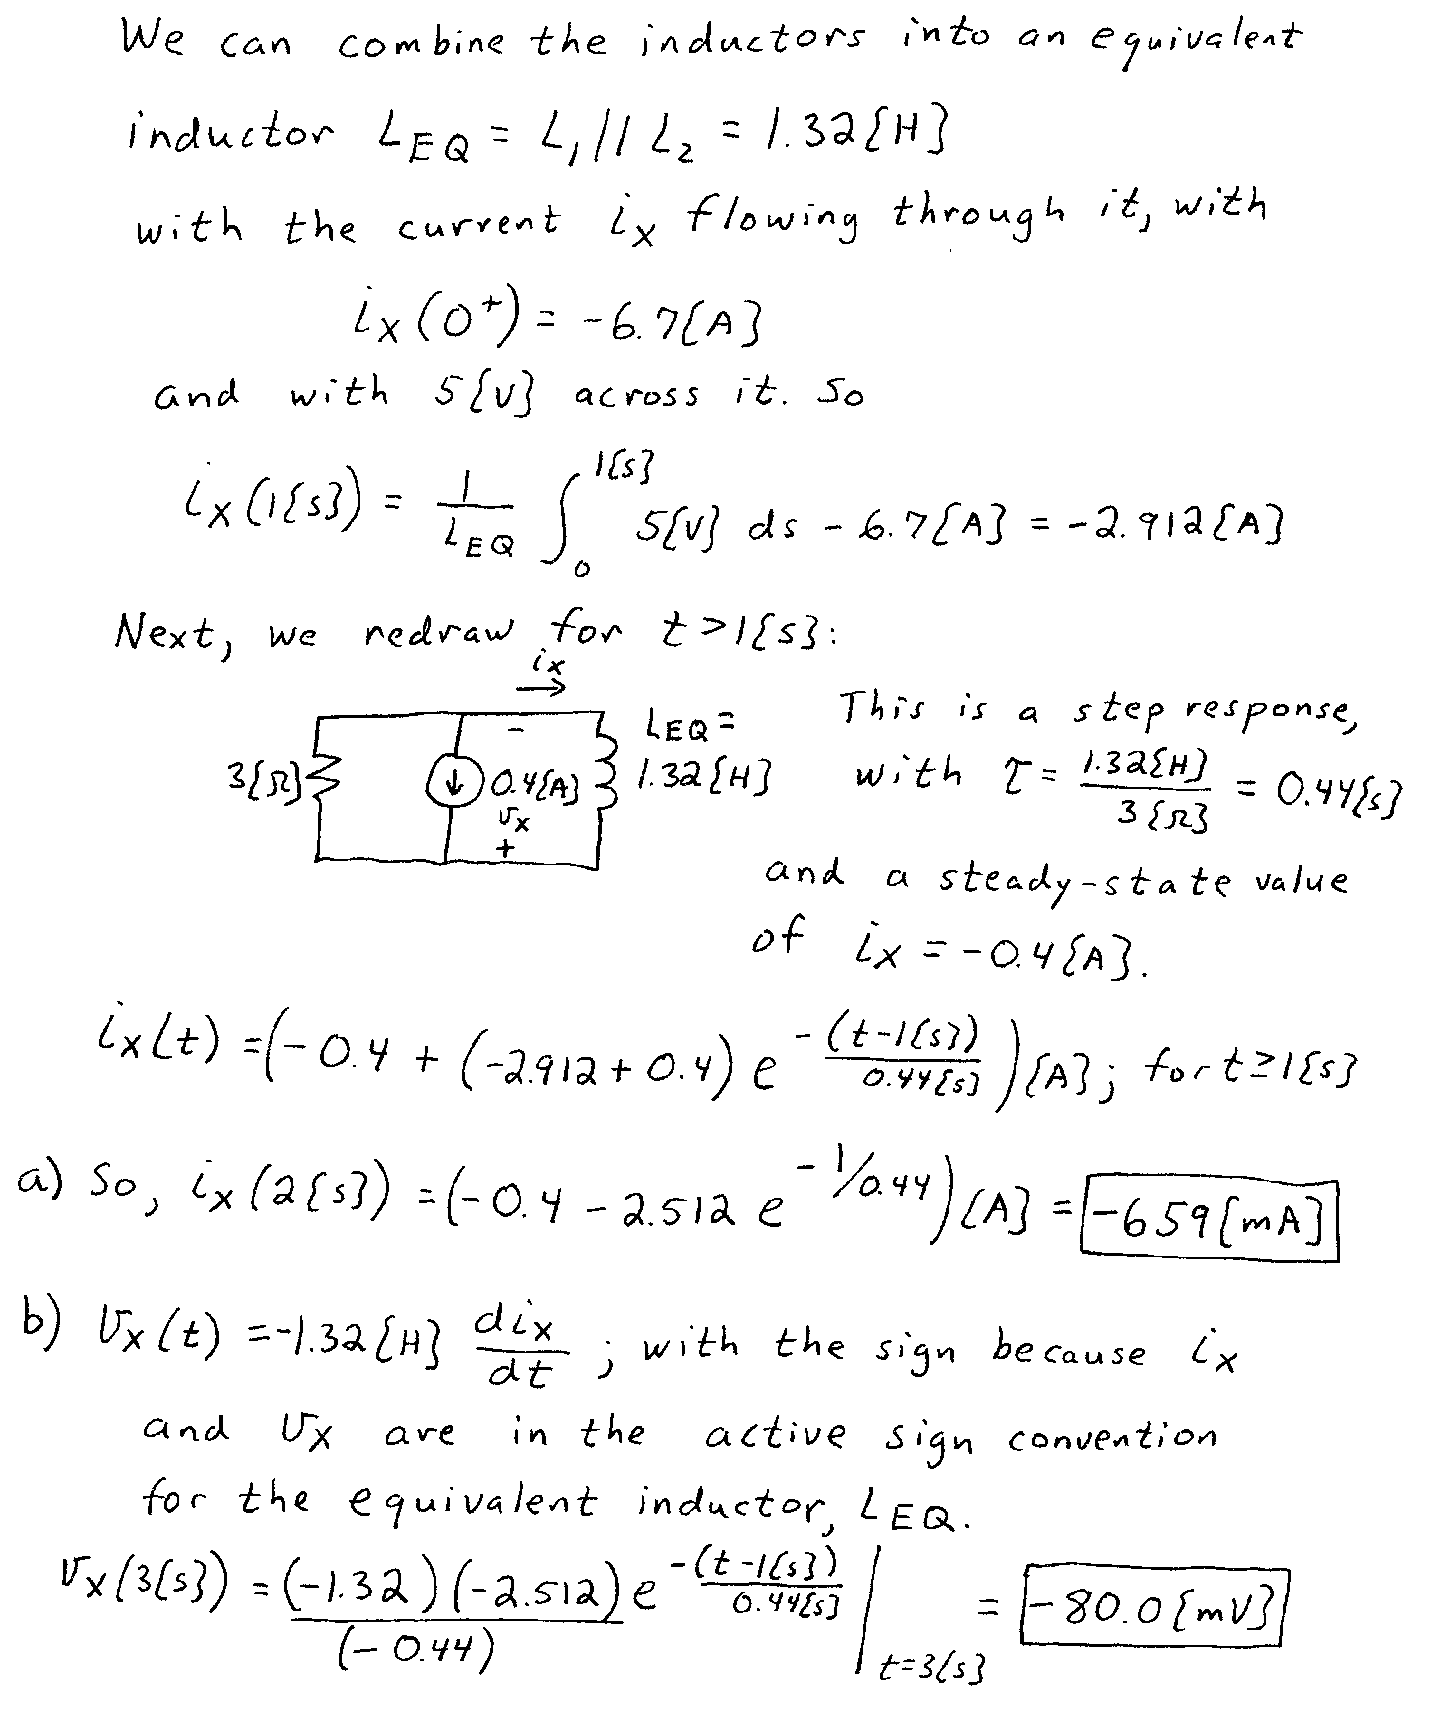 We can combine the inductors into an equivalent
inductor L_EQ = L_1 // L_2 = 1.32[H]
with the current i_x flowing through it, with
i_x(0⁺) = -6.7[A]
and with 5[V] across it. So
i_x(1[s]) = 1/L_EQ ∫_0^1[s] 5[V] ds - 6.7[A] = -2.912[A]
Next, we redraw for t>1[s]:
i_x →
3[Ω] ↓ 0.4[A] - v_x + L_EQ = 1.32[H]
This is a step response,
with τ = 1.32[H]/3[Ω] = 0.44[s]
and a steady-state value
of i_x = -0.4[A].
i_x(t) = (-0.4 + (-2.912 + 0.4) e^(-(t-1[s])/0.44[s]))[A]; for t≥1[s]
a) So, i_x(2[s]) = (-0.4 - 2.512 e^(-1/0.44))[A] = -659[mA]
b) v_x(t) = -1.32[H] di_x/dt ; with the sign because i_x
and v_x are in the active sign convention
for the equivalent inductor, L_EQ.
v_x(3[s]) = (-1.32)(-2.512)/(-0.44) e^(-(t-1[s])/0.44[s]) |_t=3[s] = -80.0[mV]